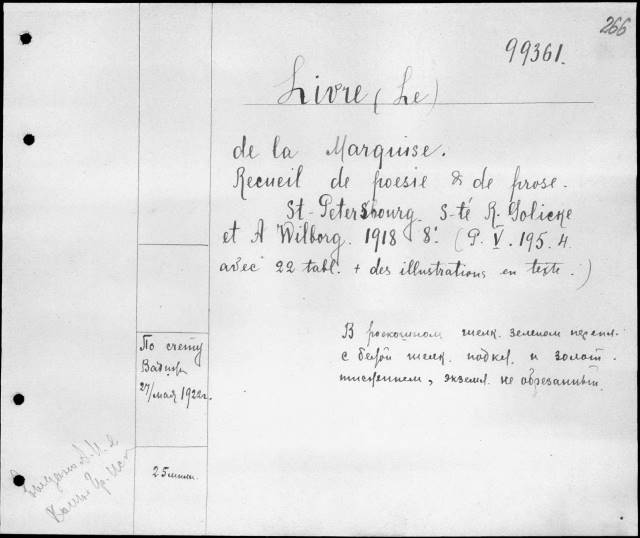 266
99361.
Livre (Le)
de la Marquise.
Recueil de poesie & de prose.
St-Petersbourg. S-té R. Golicke
et A Wilborg. 1918 8º. (P. V. 195. 4.
avec 22 tabl. + des illustrations en texte.)
В роскошном шелк. зеленом перепл.
с белой шелк. подкл. и золот.
тиснением, экземл. не обрезанный.
По счету
27/мая 1922г.
25 милл.